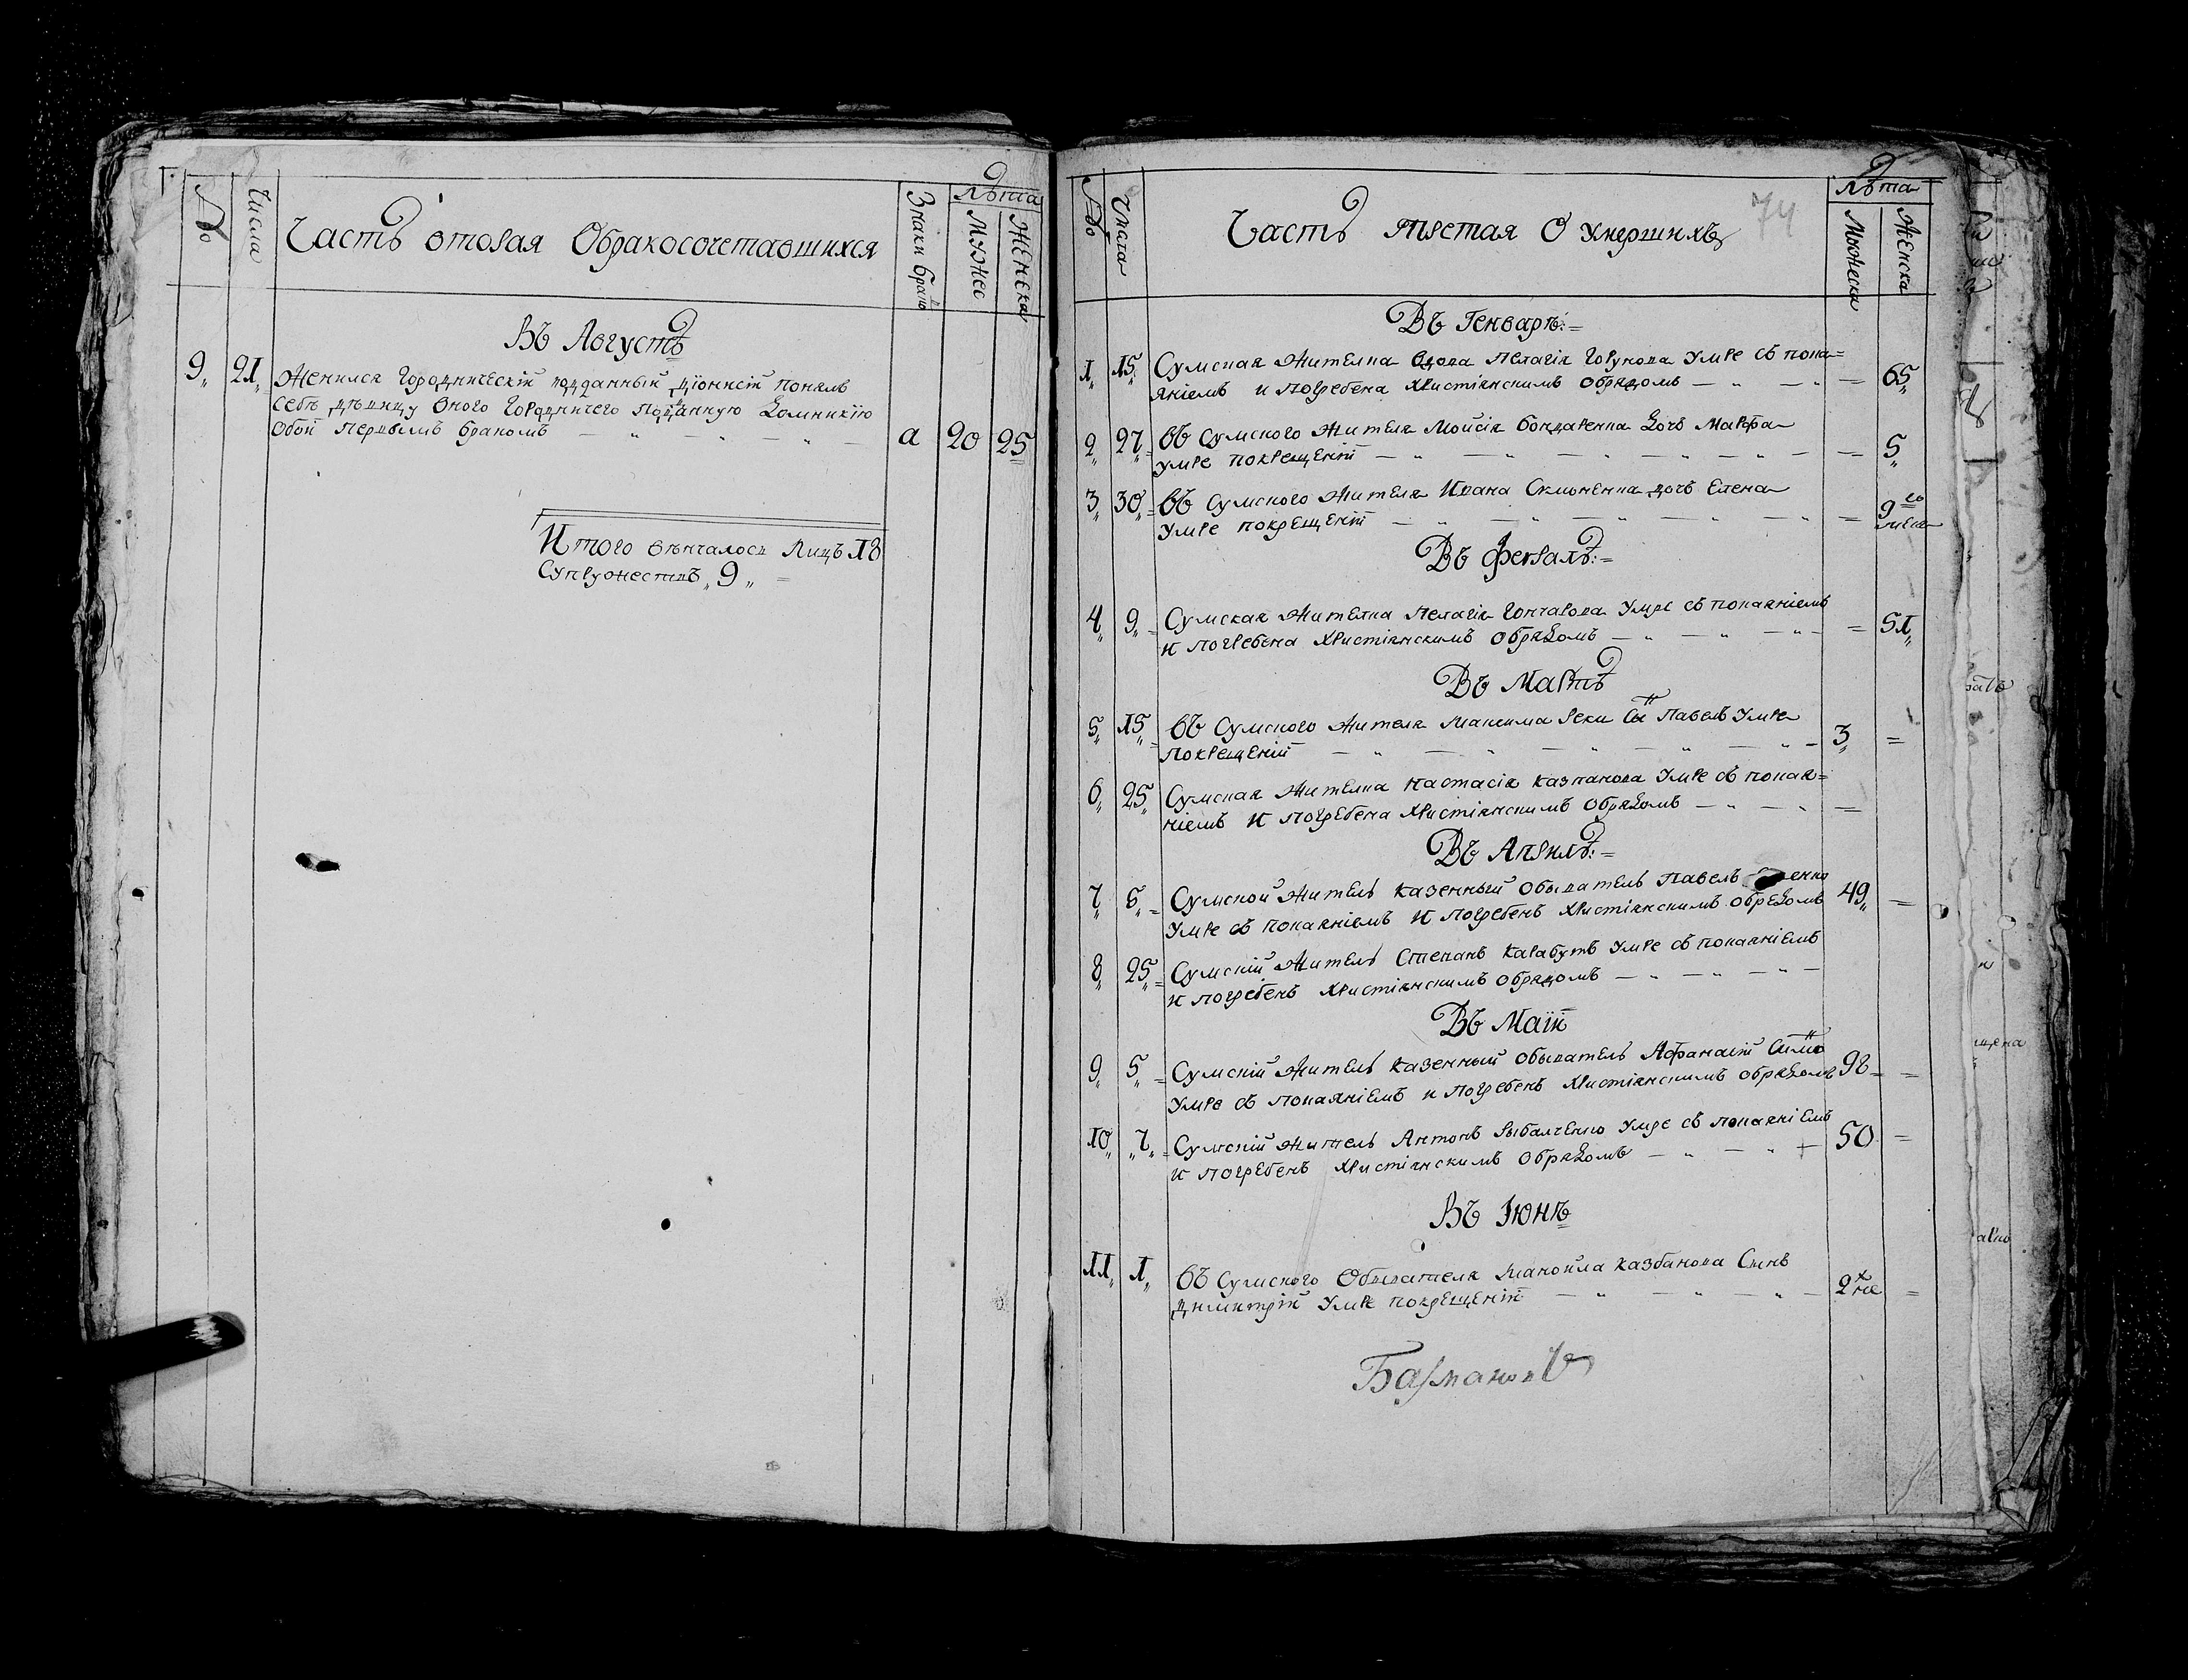 №
Числа
Часть вторая О бракосочетавшихся
Знаки браковъ
лѣта
Мужес
Женска
Въ Августѣ
9 21 Женился городническій подданный Діонисій понялъ
себѣ дѣвицу оного городничего подданную Домникію
обои первымъ бракомъ — „ — „ — „ — а 20 25
Итого вѣнчалось лицъ 18
Супружествъ „9„
74
№
Числа
Часть третая О умершихъ
лѣта
Мужеска
Женска
Въ Генварѣ:=
1 15 Сумская жителка вдова Пелагія Горунова умре съ пока=
яніемъ и погребена христіянскимъ обрядомъ — „ — „ — 65
2 27 въ Сумского жителя Мойсія Бондаренка дочь Марфа
умре покрещеніи — „ — „ — „ — „ — 5
3 30 въ Сумского жителя Ивана дочь Елена
умре покрещеніи — „ — „ — „ — „ — 9 меся
Въ Февралѣ:=
4 9 Сумская жителка Пелагія Гончарова умре съ покаяніемъ
и погребена христіянскимъ обрядомъ — „ — „ — „ — 51
Въ Мартѣ
5 15 въ Сумского жителя Максима Реки сы͠н Павелъ умре
покрещеніи — „ — „ — „ — „ — 3 =
6 25 Сумская жителка Настасія Казпанова умре съ покая=
ніемъ и погребена христіянскимъ обрядомъ — „ — „ —
Въ Априлѣ:=
7 6 Сумской житель казенный обыватель Павелъ
умре съ покаяніемъ и погребенъ христіянскимъ обрядомъ 49 =
8 25 Сумскій житель Стефанъ Карабутъ умре съ покаяніемъ
и погребенъ христіянскимъ обрядомъ — „ — „ — „ —
Въ Маіи
9 5 Сумскій житель казенный обыватель Афанасій
умре съ покаяніемъ и погребенъ христіянскимъ обрядомъ 98 =
10 7 Сумскій житель Антонъ Рыбалченко умре съ покаяніемъ
и погребенъ христіянскимъ обрядомъ — „ — „ — 50 =
Въ Іюнѣ
11 1 въ Сумского обывателя Манойла Казбанова сынъ
Димитрій умре покрещеніи — „ — „ — „ — 2х ме =